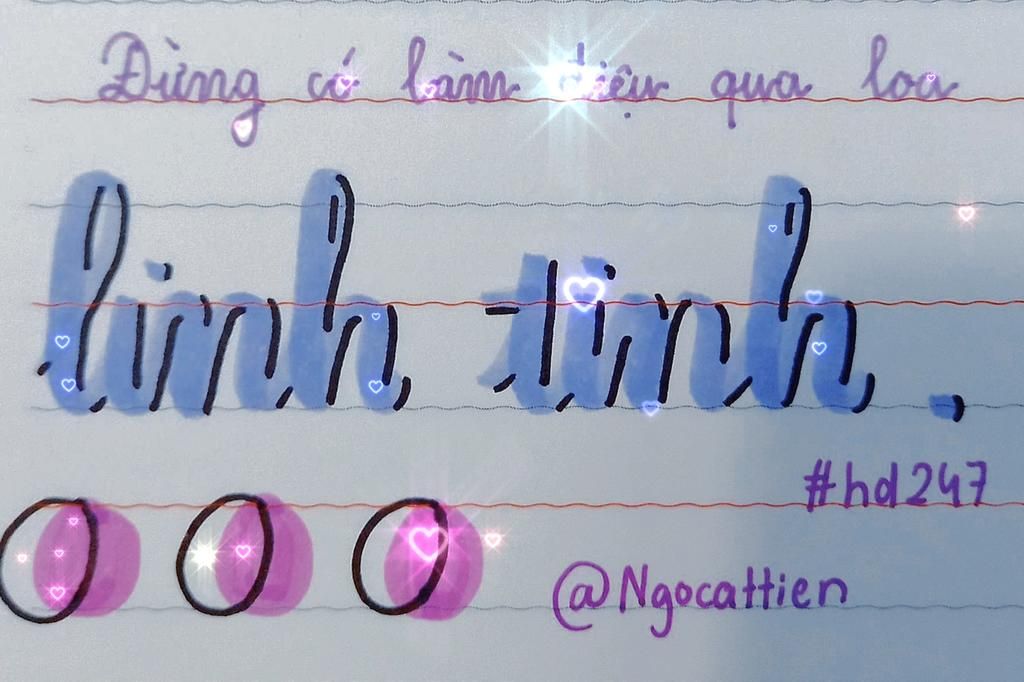 Đừng có làm diệu qua loa
linh tinh.
#hd247
@Ngocattien